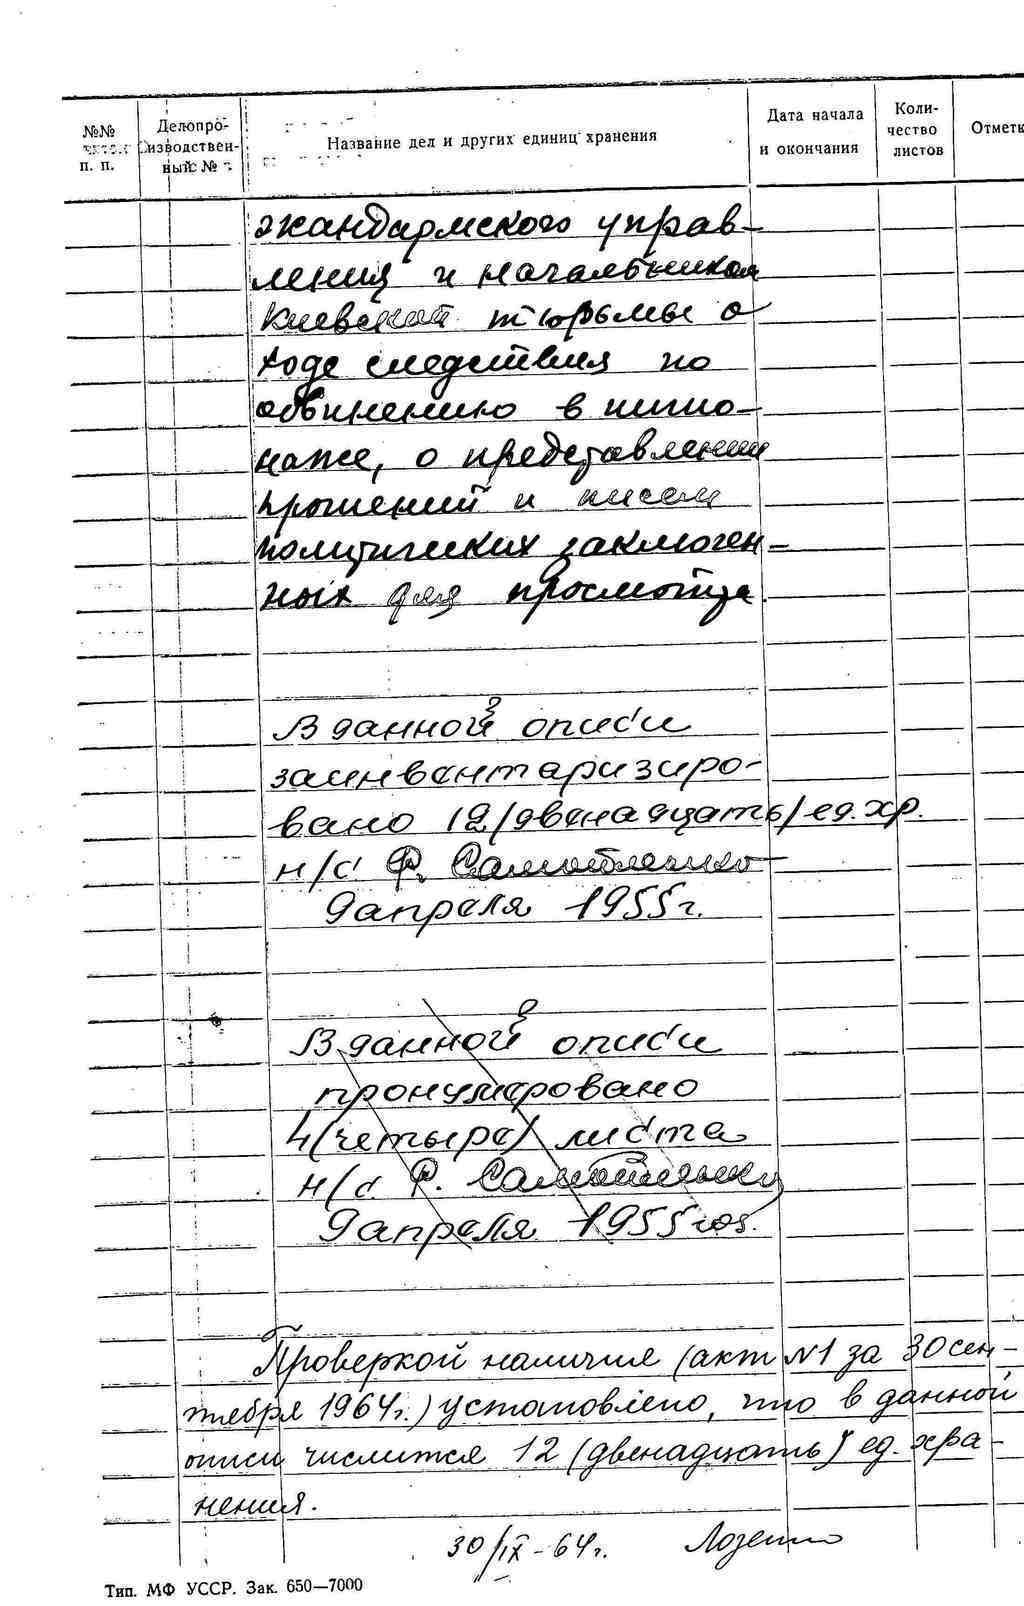 №№
п. п.
Делопро-
изводствен-
ный №
Название дел и других единиц хранения
Дата начала
и окончания
Коли-
чество
листов
Отметк
жандармского управ-
ления и начальником
Киевской тюрьмы о
ходе следствия по
обвинению в шпио-
наже, о представлении
прошений и писем
политических заключен-
ных для просмотра.
В данной описи
заинвентаризиро-
вано 12/двенадцать/ед.хр.
н/с Ф. Самойленко
9 апреля 1955 г.
В данной описи
пронумеровано
4 (четыре) листа
н/с Ф. Самойленко
9 апреля 1955 год.
Проверкой наличия (акт №1 за 30 сен-
тября 1964 г.) установлено, что в данной
описи числится 12 (двенадцать) ед. хра-
нения.
30/IX-64 г.
Тип. МФ УССР. Зак. 650—7000